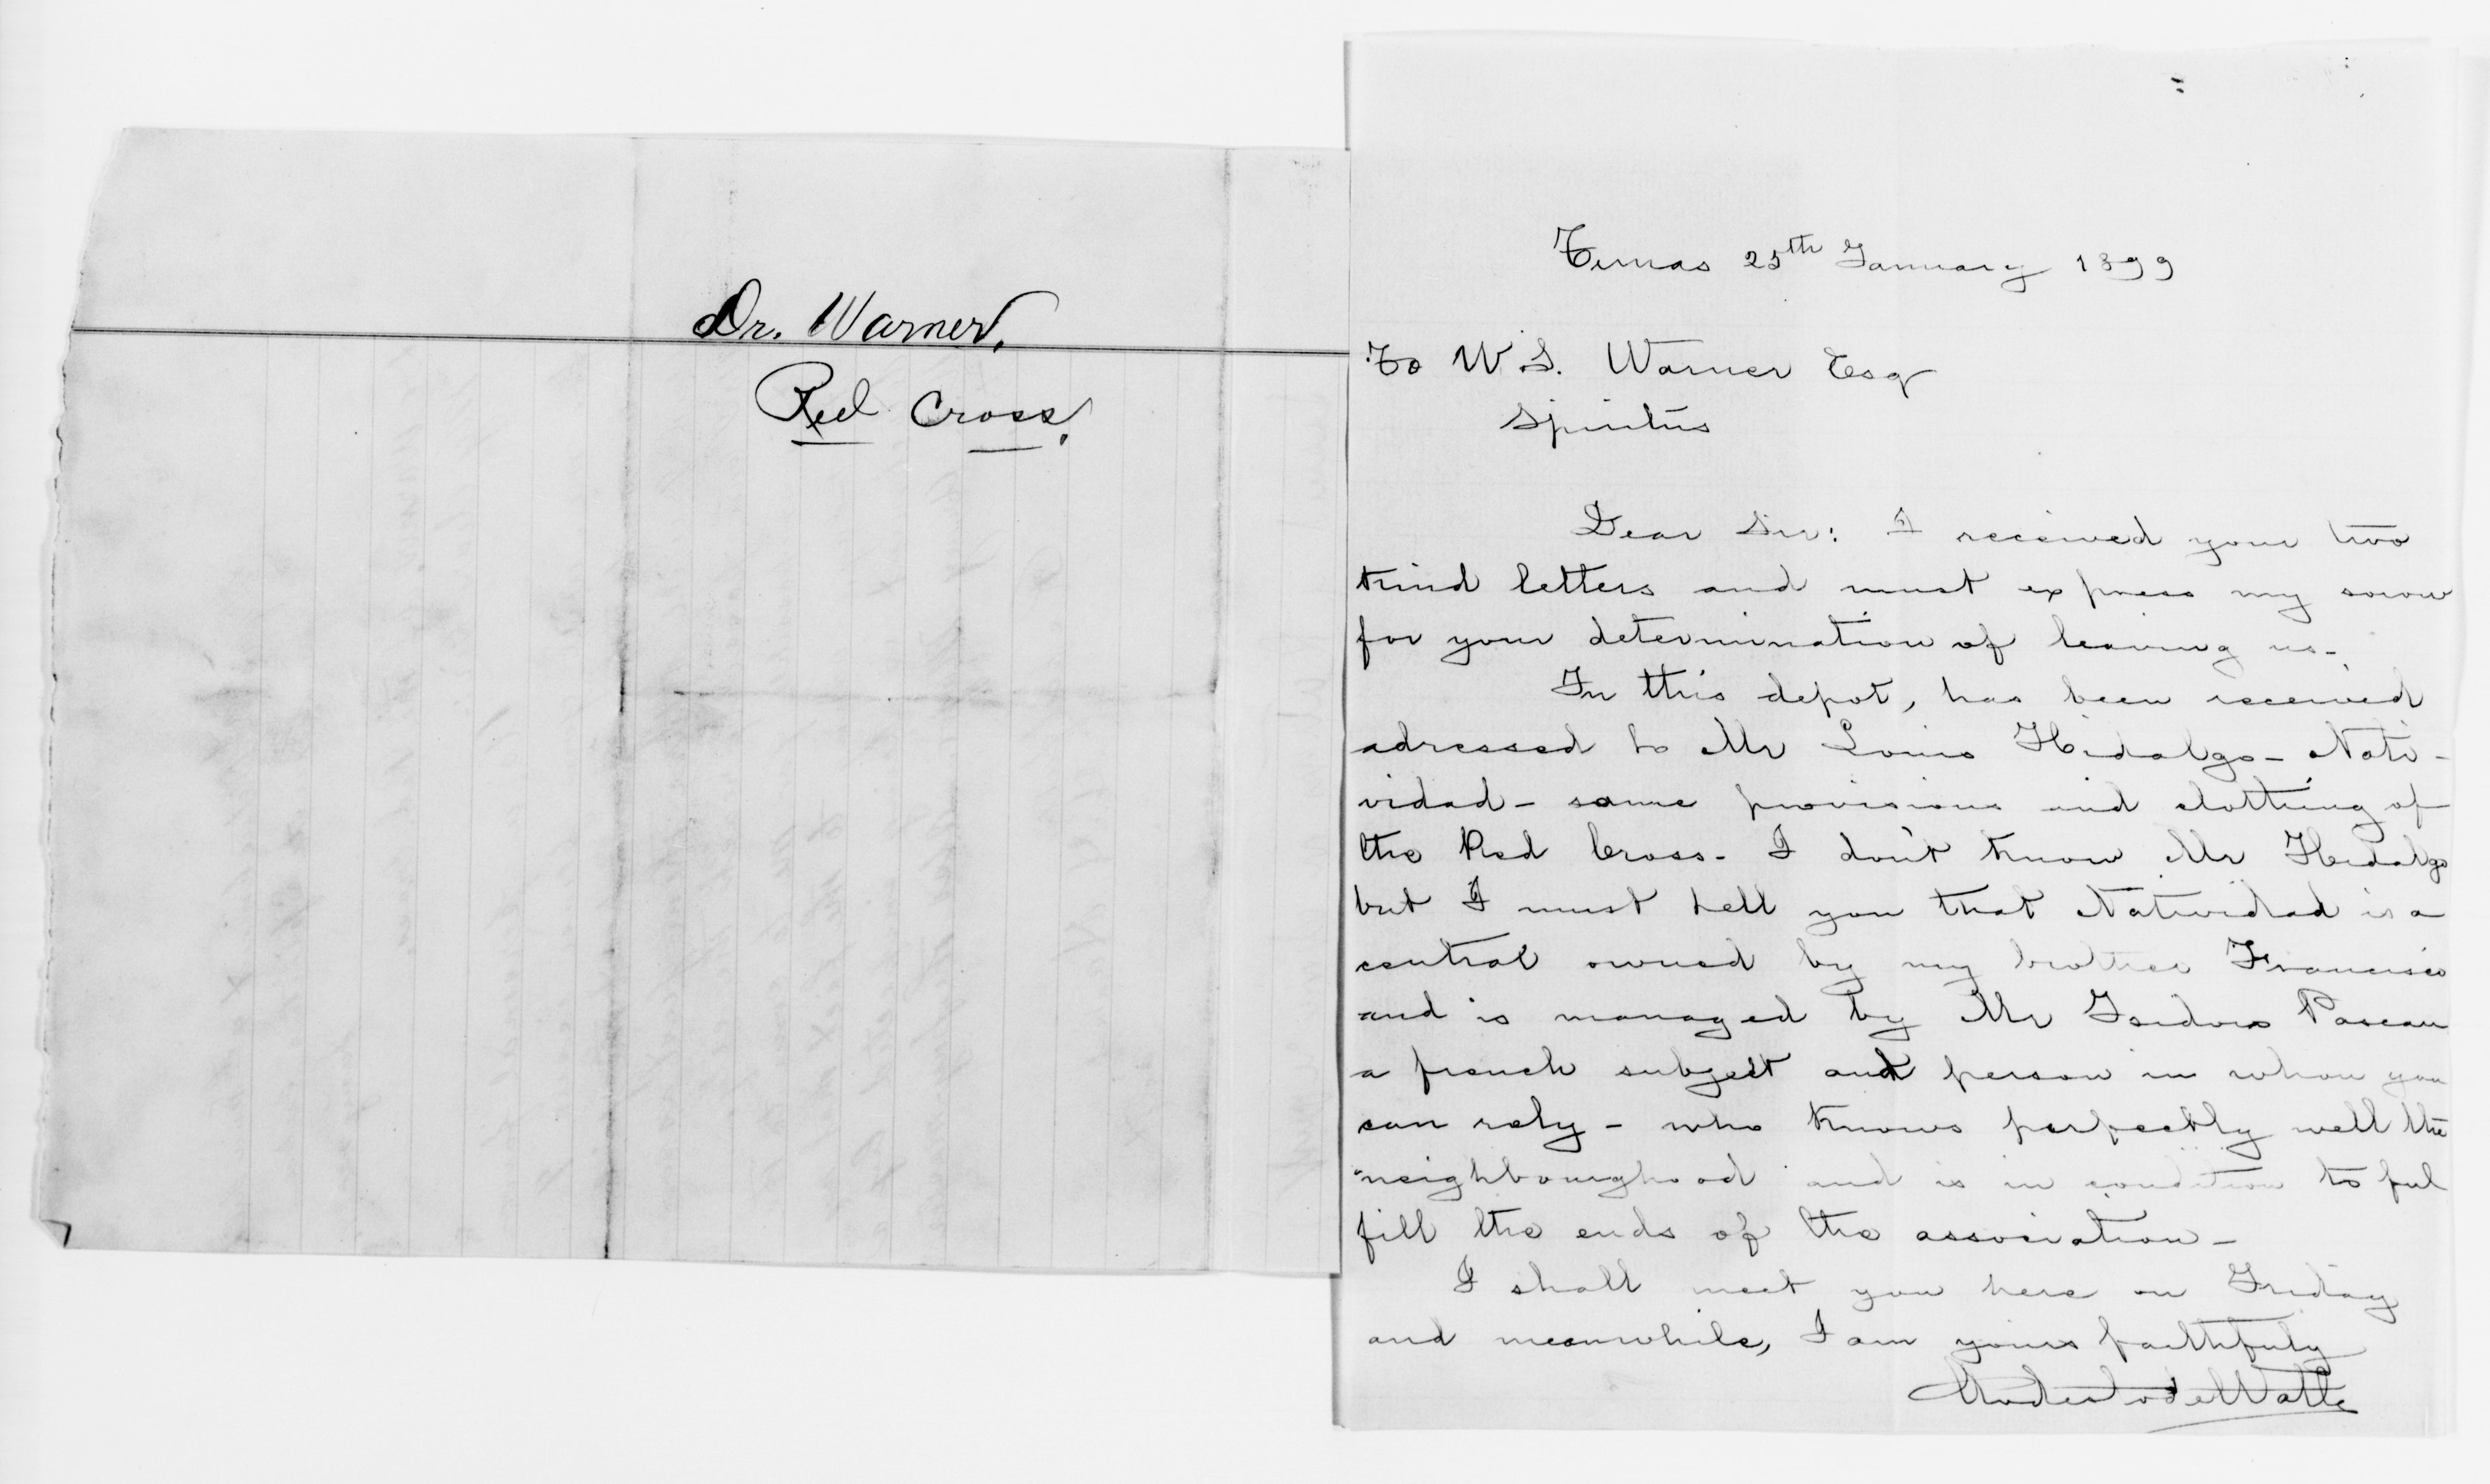 Dr. Warner,
Red Cross,
Tunas 25th January 1899
To W. S. Warner Esq
Spiritus
Dear Sir: I received your two
kind letters and must express my sorow
for your determination of leaving us-
In this depot, has been received
adressed to Mr Louis Hidalgo - Nati-
vidad - some provisions and clothing of
the Red Cross - I don't know Mr Hidalgo
but I must tell you that Natividad is a
central owned by my brother Francisco
and is managed by Mr Isidoro
a french subject and person in whom you
can rely - who knows perfectly well the
neighbourghood and is in condition to ful
fill the ends of the association -
I shall meet you here on Friday
and meanwhile, I am yours faithfuly
Modesto del Valle